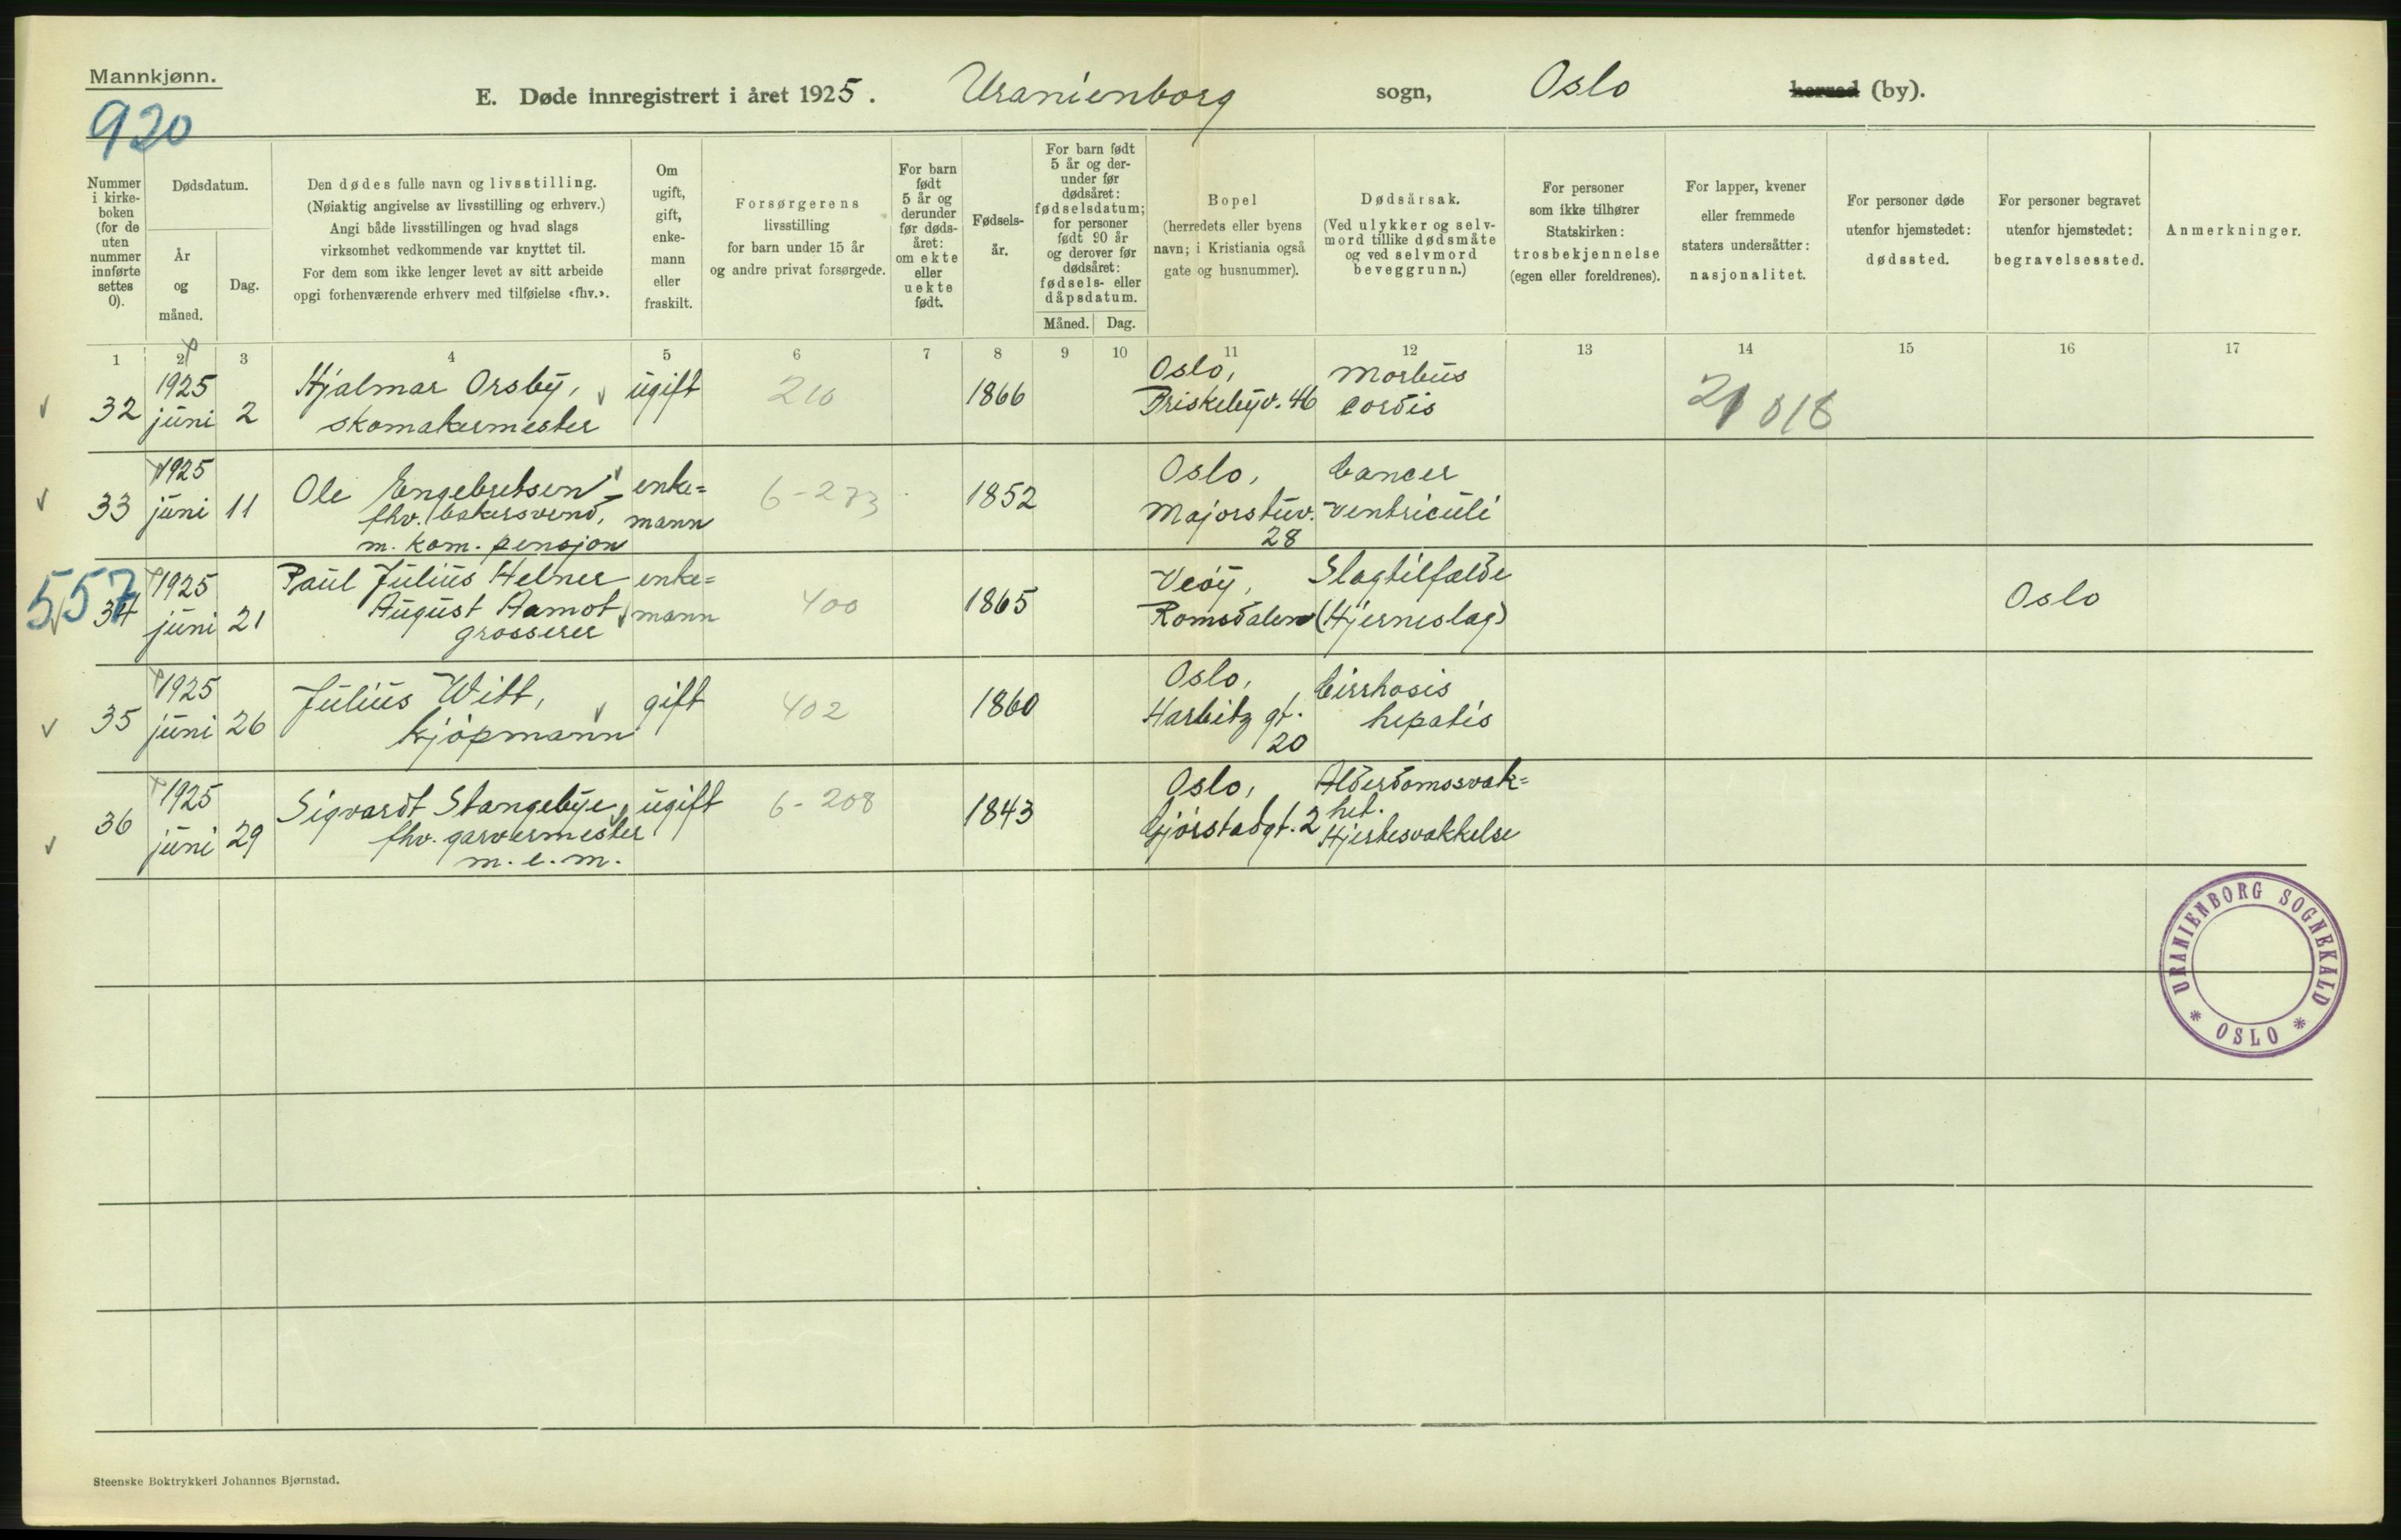 Mannkjønn.
E. Døde innregistrert i året 1925. Uranienborg sogn, Oslo herred (by).
920
Nummer i kirkeboken (for de uten nummer innførte settes 0).
Dødsdatum.
År og måned.
Dag.
Den dødes fulle navn og livsstilling.
(Nøiaktig angivelse av livsstilling og erhverv.)
Angi både livsstillingen og hvad slags
virksomhet vedkommende var knyttet til.
For dem som ikke lenger levet av sitt arbeide
opgi forhenværende erhverv med tilføielse «fhv.».
Om ugift, gift, enkemann eller fraskilt.
Forsørgerens
livsstilling
for barn under 15 år
og andre privat forsørgede.
For barn født 5 år og derunder før dødsåret: om ekte eller uekte født.
Fødselsår.
For barn født 5 år og derunder før dødsåret: fødselsdatum; for personer født 90 år og derover før dødsåret: fødsels- eller dåpsdatum.
Måned. Dag.
Bopel
(herredets eller byens
navn; i Kristiania også
gate og husnummer).
Dødsårsak.
(Ved ulykker og selvmord tillike dødsmåte og ved selvmord beveggrunn.)
For personer
som ikke tilhører
Statskirken:
trosbekjennelse
(egen eller foreldrenes).
For lapper, kvener
eller fremmede
staters undersåtter:
nasjonalitet.
For personer døde
utenfor hjemstedet:
dødssted.
For personer begravet
utenfor hjemstedet:
begravelsessted.
Anmerkninger.
1 2 3 4 5 6 7 8 9 10 11 12 13 14 15 16 17
32 1925 juni 2 Hjalmar Orsby, skomakermester ugift 210 1866 Oslo, Briskebyv. 46 Morbus cordis 21 018
33 1925 juni 11 Ole Engebretsen fhv. bakersvend, m. kom. pensjon enke=mann 6-273 1852 Oslo, Majorstuv. 28 Cancer ventriculi
557
34 1925 juni 21 Paul Julius Helner August Aamot grosserer enke=mann 400 1865 Veøy, Romsdalen Slagtilfælde (Hjerneslag) Oslo
35 1925 juni 26 Julius Witt, kjøpmann gift 402 1860 Oslo, Harbitz gt. 20 Cirrhosis hepatis
36 1925 juni 29 Sigvardt Stangebye, fhv. garvermester m. e. m. ugift 6-208 1843 Oslo, Gjørstadgt. 2 Alderdomssvak=het. Hjertesvakkelse
URANIENBORG SOGNEKALD * OSLO *
Steenske Boktrykkeri Johannes Bjørnstad.